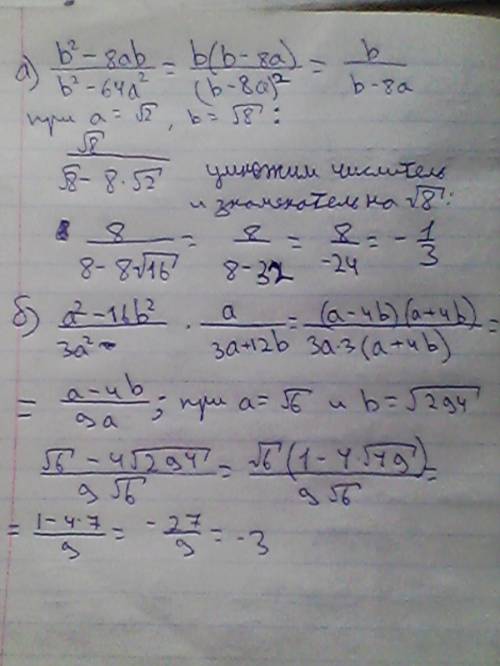 а) (b² - 8ab)/(b² - 64a²) = b(b - 8a)/(b - 8a)² = b/(b - 8a)
при a = √2, b = √8 :
√8/(√8 - 8·√2) умножим числитель
и знаменатель на √8:
8/(8 - 8√16) = 8/(8 - 32) = 8/-24 = - 1/3
б) (a² - 16b²)/3a² · a/(3a+12b) = (a - 4b)(a+4b)/(3a·3(a+4b)) =
= (a - 4b)/9a ; при a = √6 и b = √294
(√6 - 4√294)/9√6 = √6(1 - 4√49)/9√6 =
= (1 - 4·7)/9 = -27/9 = -3